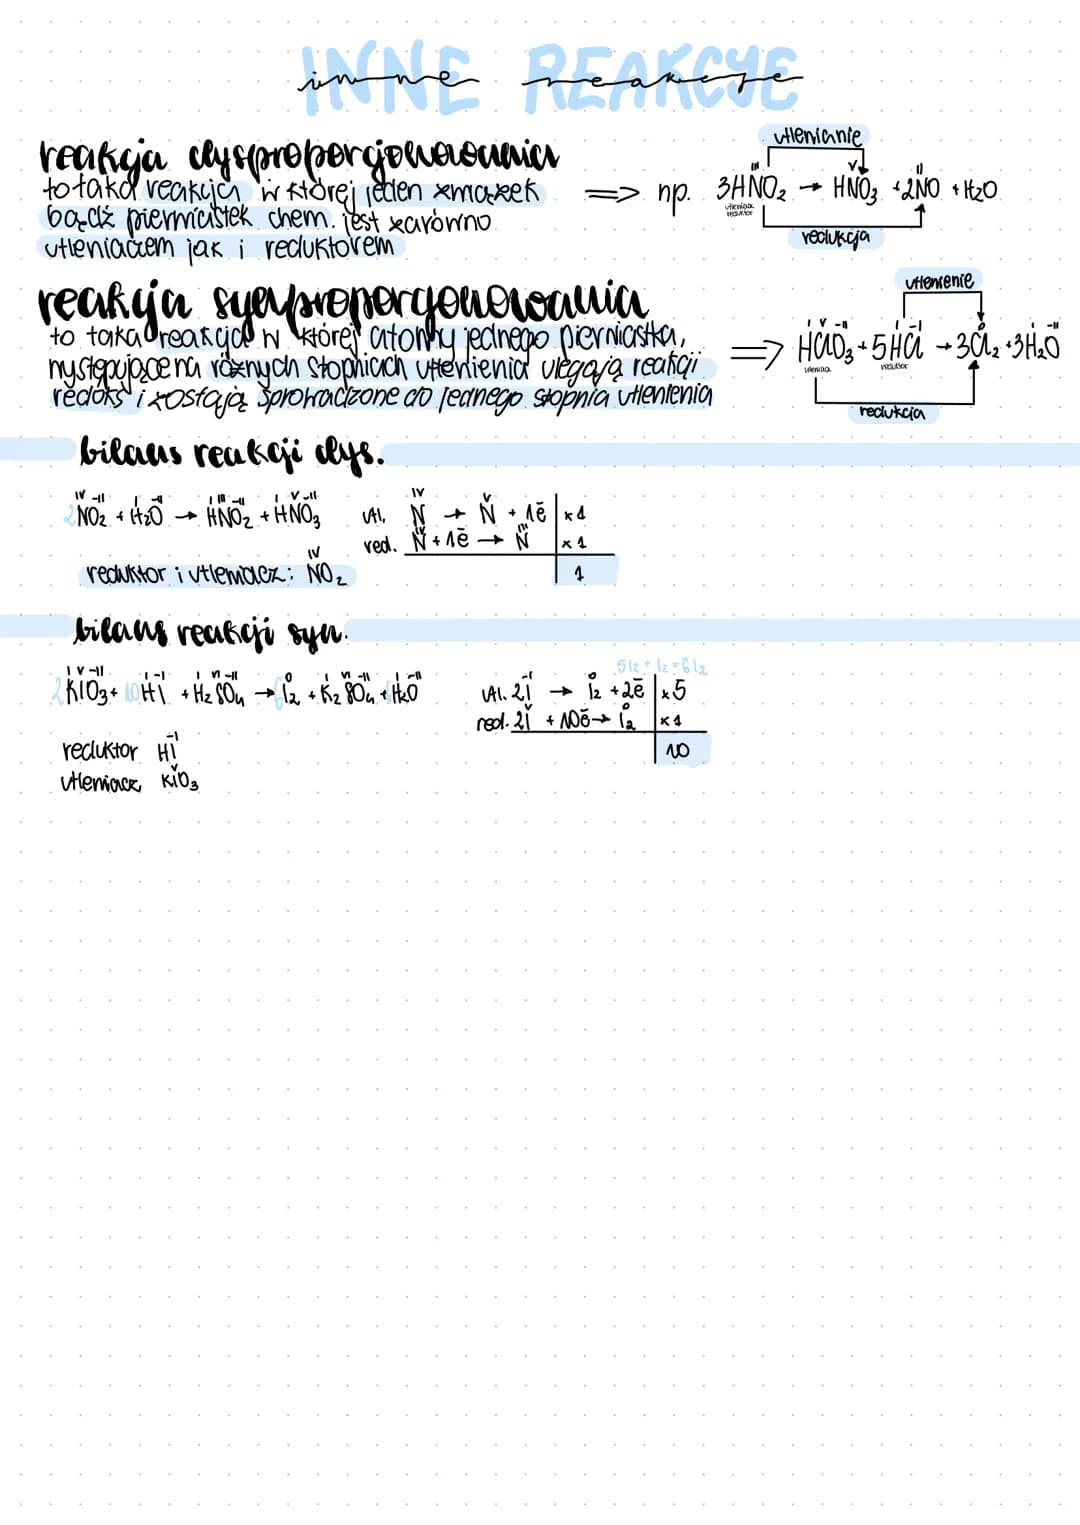 INNE REAKCJE
inne reakcje
reakcja dysproporcjonowania
to taka reakcja w której jeden związek
bądź pierwiastek chem. jest zarówno
utleniaczem jak i reduktorem
=> np. 3HNO₂ → HNO₃ + 2NO + H₂O
III V II
utlenianie
utleniacz
reduktor
redukcja
reakcja synproporcjonowania
to taka reakcja w której atomy jednego pierwiastka,
występujące na różnych stopniach utlenienia ulegają reakcji
redoks i zostają sprowadzone do jednego stopnia utlenienia
utlenienie
I V -II I -I 0 I -II
=> HClO₃ + 5HCl → 3Cl₂ + 3H₂O
utleniacz reduktor
redukcja
bilans reakcji dys.
IV -II I -II I III -II I V -II
2NO₂ + H₂O → HNO₂ + HNO₃
utl. N → N + 1ē | x 1
IV V
red. N + 1ē → N | x 1
IV III
1
reduktor i utleniacz: NO₂
IV
bilans reakcji syn.
I V -II I -I I VI -II 0 I VI -II I -II
2KIO₃ + 10HI + H₂SO₄ → 6I₂ + K₂SO₄ + 6H₂O
5I₂ + I₂ = 6I₂
utl. 2I → I₂ + 2ē | x 5
-I 0
red. 2I + 10ē → I₂ | x 1
V 0
10
reduktor HI
-I
utleniacz KIO₃
V